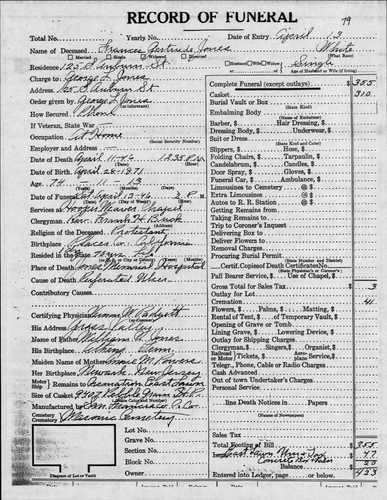 RECORD OF FUNERAL
79
Total No. Yearly No. Date of Entry April 13
Name of Deceased Frances Gertrude Jones White
Married Single Widowed Divorced (What Race)
Residence 125 S. Auburn St. Husband Wife Widow Single
Age of Husband or Wife (if living)
Charge to George L. Jones
Address 125 S. Auburn St
Order given by George L. Jones
How Secured Phone
If Veteran, State War
Occupation At Home
(Social Security Number)
Employer and Address
Date of Death April 11-46 12:35 P.M.
Date of Birth April -28-1871
Age 74 -11 -13
Date of Funeral April 13-46 2 P.M.
Services at Hooper Weaver Chapel
Clergyman Rev.
Religion of the Deceased Protestant
Birthplace Placer Co. California
Resided in the State
Place of Death Jones Memorial Hospital
Cause of Death Perforated Ulcer
Contributory Causes
Certifying Physician
His Address Grass Valley
Name of Father William A. Jones
His Birthplace
Maiden Name of Mother
Her Birthplace Newark New Jersey
Remains to Cremation East Lawn
Size of Casket
Manufactured by San Francisco C. Co.
Cemetery
Crematory Masonic Cemetery
Lot No.
Grave No.
Section No.
Block No.
Owner
Diagram of Lot or Vault
Complete Funeral (except outlays) $ 355
Casket 310
Burial Vault or Box
(State Kind)
Embalming Body
(State Kind)
Barber, $ Hair Dressing, $
Dressing Body, $ Underwear, $
Suit or Dress
(State Kind and Color)
Slippers, $ Hose, $
Folding Chairs, $ Tarpaulin, $
Candelabrum, $ Candles, $
Door Spray, $ Gloves, $
Funeral Car, $ Ambulance, $
Limousines to Cemetery @ $
Extra Limousines @ $
Autos to R. R. Station @ $
Getting Remains from
Taking Remains to
Trip to Coroner's Inquest
Delivering Box to
Deliver Flowers to
Removal Charges
Procuring Burial Permit
(State Number and District)
Certif. Copies of Death Certificates No.
(State Physician's or Coroner's)
Pall Bearer Service, $ Use of Chapel, $
Gross Total for Sales Tax $ 3
Outlay for Lot
Cremation 41
Flowers, $ Palms, $ Matting, $
Rental of Tent, $ of Temporary Vault, $
Opening of Grave or Tomb
Lining Grave, $ Lowering Device, $
Outlay for Shipping Charges
Clergyman, $ Singers, $ Organist, $
Railroad / Motor Tickets, $ Aeroplane Service, $
Telegr., Phone, Cable or Radio Charges
Cash Advanced
Out of town Undertaker's Charges
Personal Service
line Death Notices in Papers
(Names of Newspapers)
Sales Tax
Total Footing of Bill $ 355
47
Concrete
20
Balance
Entered into Ledger, page or below $ 423